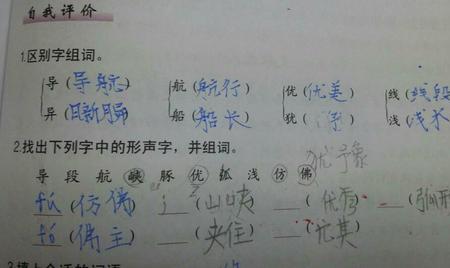 自我评价
1.区别字组词。
导(导航) 航(航行) 优(优美) 线(线段
异( 船(船长) 犹( 浅(浅水
2.找出下列字中的形声字，并组词。 犹予象
导 段 航 峡 豚 优 弧 浅 仿 佛
fú(仿佛) (山峡) (优秀) (弧形
fó(佛主) (夹住) (尤其)